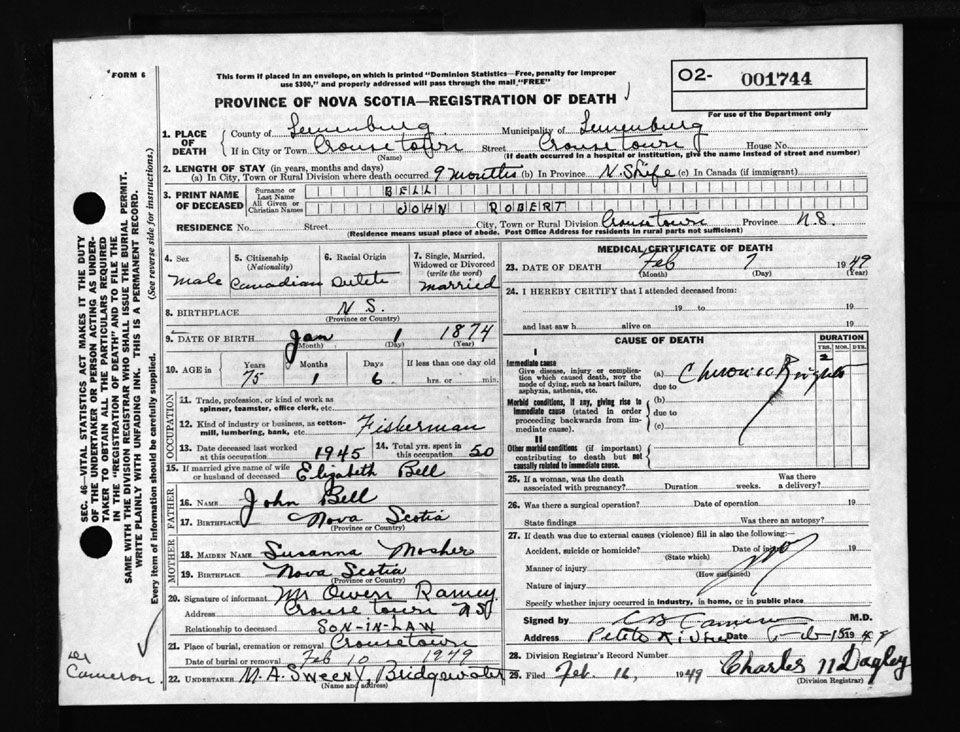 FORM 6
This form if placed in an envelope, on which is printed "Dominion Statistics—Free, penalty for improper
use $300," and properly addressed will pass through the mail "FREE"
O2- 001744
For use of the Department only
PROVINCE OF NOVA SCOTIA—REGISTRATION OF DEATH
1. PLACE OF DEATH
County of Lunenburg Municipality of Lunenburg
If in City or Town Crousetown Street Crousetown House No.
(Name) (If death occurred in a hospital or institution, give the name instead of street and number)
2. LENGTH OF STAY (in years, months and days)
(a) In City, Town or Rural Division where death occurred 9 months (b) In Province N.S. life (c) In Canada (if immigrant)
3. PRINT NAME OF DECEASED
Surname or Last Name BELL
All Given or Christian Names JOHN ROBERT
RESIDENCE No. Street City, Town or Rural Division Crousetown Province N.S.
(Residence means usual place of abode. Post Office Address for residents in rural parts not sufficient)
4. Sex Male
5. Citizenship (Nationality) Canadian
6. Racial Origin
7. Single, Married, Widowed or Divorced (write the word) married
8. BIRTHPLACE N S.
(Province or Country)
9. DATE OF BIRTH Jan 1 1874
(Month) (Day) (Year)
10. AGE in Years 75 Months 1 Days 6 If less than one day old hrs. or min.
OCCUPATION
11. Trade, profession or kind of work as
spinner, teamster, office clerk, etc.
12. Kind of industry or business, as cotton-
mill, lumbering, bank, etc. Fisherman
13. Date deceased last worked at this occupation 1945
14. Total yrs. spent in this occupation 50
15. If married give name of wife or husband of deceased Elizabeth Bell
FATHER
16. NAME John Bell
17. BIRTHPLACE Nova Scotia
(Province or Country)
MOTHER
18. MAIDEN NAME Susanna Mosher
19. BIRTHPLACE Nova Scotia
(Province or Country)
20. Signature of informant Mr Owen Ramey
Address Crousetown N.S
Relationship to deceased SON-IN-LAW
21. Place of burial, cremation or removal Crousetown
Date of burial or removal Feb 10 1949
22. UNDERTAKER M. A. SWEENY, Bridgewater
(Name and address)
MEDICAL CERTIFICATE OF DEATH
23. DATE OF DEATH Feb 7 1949
(Month) (Day) (Year)
24. I HEREBY CERTIFY that I attended deceased from:
19 to 19
and last saw h alive on 19
CAUSE OF DEATH
DURATION
YRS. MOS. DYS.
2
I
Immediate cause
Give disease, injury or complica-
tion which caused death, not the
mode of dying, such as heart failure,
asphyxia, asthenia, etc.
(a) Chronic Brights
due to
Morbid conditions, if any, giving rise to
immediate cause (stated in order
proceeding backwards from im-
mediate cause).
(b)
due to
(c)
II
Other morbid conditions (if important)
contributing to death but not
causally related to immediate cause.
25. If a woman, was the death associated with pregnancy? Duration weeks. Was there a delivery?
26. Was there a surgical operation? Date of operation 19
State findings Was there an autopsy?
27. If death was due to external causes (violence) fill in also the following:—
Accident, suicide or homicide? Date of injury 19
(State which)
Manner of injury
(How sustained)
Nature of injury
Specify whether injury occurred in industry, in home, or in public place
Signed by M.D.
Address Petite Riviere Date
28. Division Registrar's Record Number
29. Filed Feb. 16, 1949 Charles N Dagley
(Division Registrar)
SEC. 46—VITAL STATISTICS ACT MAKES IT THE DUTY
OF THE UNDERTAKER OR PERSON ACTING AS UNDER-
TAKER TO OBTAIN ALL THE PARTICULARS REQUIRED
IN THE "REGISTRATION OF DEATH" AND TO FILE THE
SAME WITH THE DIVISION REGISTRAR WHO SHALL ISSUE THE BURIAL PERMIT.
WRITE PLAINLY WITH UNFADING INK. THIS IS A PERMANENT RECORD.
Every item of information should be carefully supplied. (See reverse side for instructions.)
Cameron.